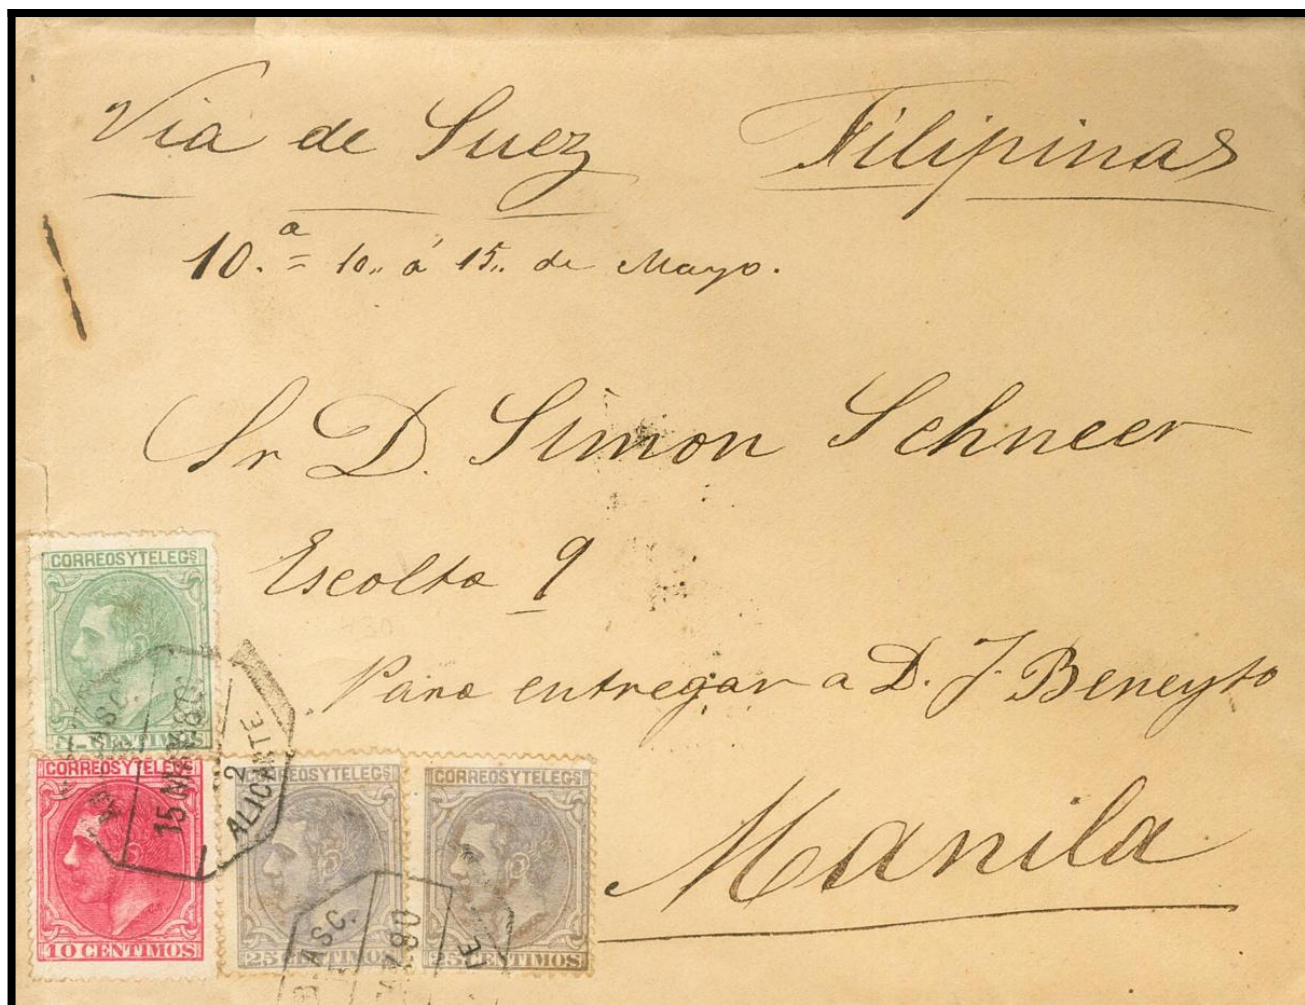 Via de Suez Filipinas
10.ª = 10,, á 15,, de Mayo.
Sr D. Simon Schneer
Escolta 9
Para entregar a D. J. Beneyto
Manila
CORREOS Y TELEGS
5 CENTIMOS
CORREOS Y TELEGS
10 CENTIMOS
CORREOS Y TELEGS
25 CENTIMOS
CORREOS Y TELEGS
25 CENTIMOS
2
ALICANTE